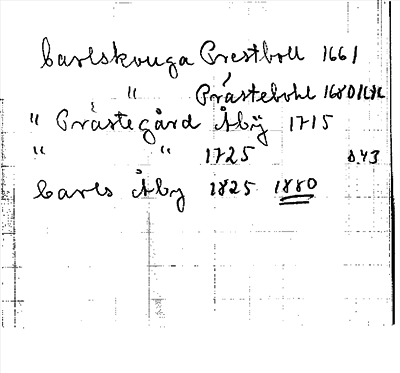 Carlskouga Prestboll 1661
" Prästebohl 1680
" Prästegård Åbÿ 1715
" " 1725 s. 43
Carls Åby 1825 1880